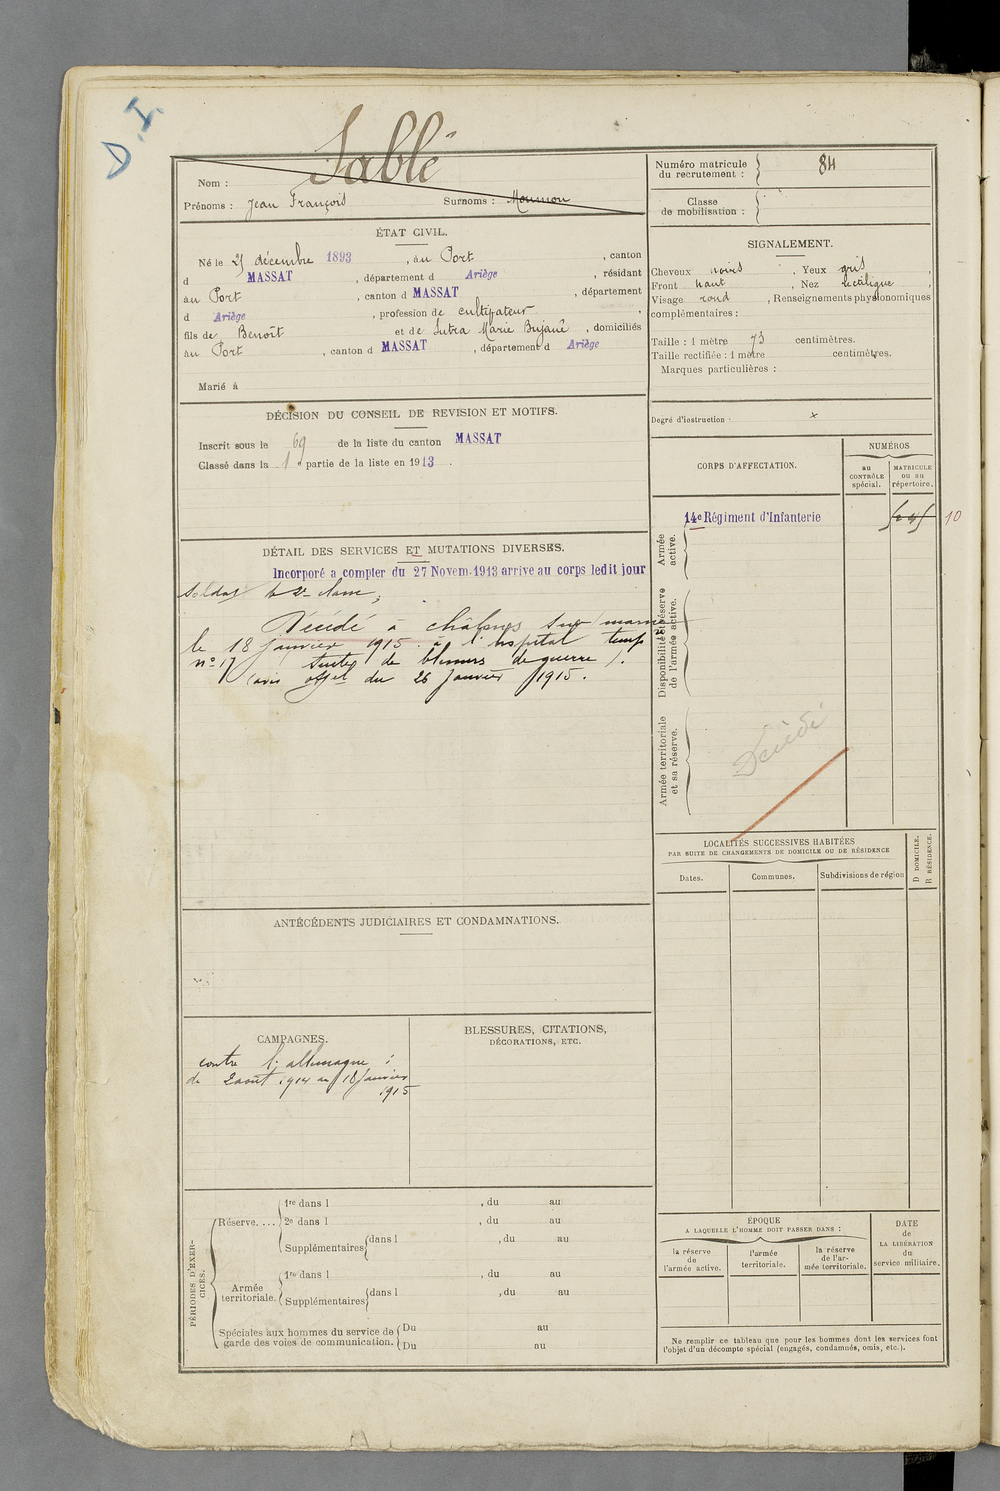 D.I.
Sablé
Nom :
Prénoms : Jean François Surnoms :
Numéro matricule
du recrutement : 84
Classe
de mobilisation :
ÉTAT CIVIL.
Né le décembre 1893 , au Port , canton
d MASSAT , département d Ariège , résidant
au Port , canton d MASSAT , département
d Ariège , profession de cultivateur ,
fils de Benoît et de Marie , domiciliés
au Port , canton d MASSAT , département d Ariège
Marié à
SIGNALEMENT.
Cheveux noirs , Yeux gris ,
Front haut , Nez rectiligne ,
Visage rond , Renseignements physionomiques
complémentaires :
Taille : 1 mètre 73 centimètres.
Taille rectifiée : 1 mètre centimètres.
Marques particulières :
Degré d'instruction : x
DÉCISION DU CONSEIL DE REVISION ET MOTIFS.
Inscrit sous le 69 de la liste du canton MASSAT
Classé dans la 1 partie de la liste en 1913 .
CORPS D'AFFECTATION.
NUMÉROS
au
CONTRÔLE
spécial.
MATRICULE
ou au
répertoire.
14e Régiment d'Infanterie
10
Armée
active.
Disponibilité et réserve
de l'armée active.
Armée territoriale
et sa réserve.
Décédé
DÉTAIL DES SERVICES ET MUTATIONS DIVERSES.
Incorporé a compter du 27 Novem. 1913 arrive au corps ledit jour
soldat de 2e classe ;
Décédé à châlons sur marne
le 18 janvier 1915 à l'hopital temp
n° 17 (suites de blessures de guerre).
(avis offel du 26 janvier 1915.
LOCALITÉS SUCCESSIVES HABITÉES
PAR SUITE DE CHANGEMENTS DE DOMICILE OU DE RÉSIDENCE
Dates.
Communes.
Subdivisions de région
D DOMICILE.
R RÉSIDENCE.
ANTÉCÉDENTS JUDICIAIRES ET CONDAMNATIONS.
CAMPAGNES.
contre l'allemagne :
du 2 août 1914 au 18 janvier
1915
BLESSURES, CITATIONS,
DÉCORATIONS, ETC.
PÉRIODES D'EXER-
CICES.
Réserve....
1re dans l , du au
2e dans l , du au
Supplémentaires dans l , du au
Armée
territoriale.
1re dans l , du au
Supplémentaires dans l , du au
Spéciales aux hommes du service de
garde des voies de communication.
Du au
Du au
ÉPOQUE
A LAQUELLE L'HOMME DOIT PASSER DANS :
la réserve
de
l'armée active.
l'armée
territoriale.
la réserve
de l'ar-
mée territoriale.
DATE
de
LA LIBÉRATION
du
service militaire.
Ne remplir ce tableau que pour les hommes dont les services font
l'objet d'un décompte spécial (engagés, condamnés, omis, etc.).